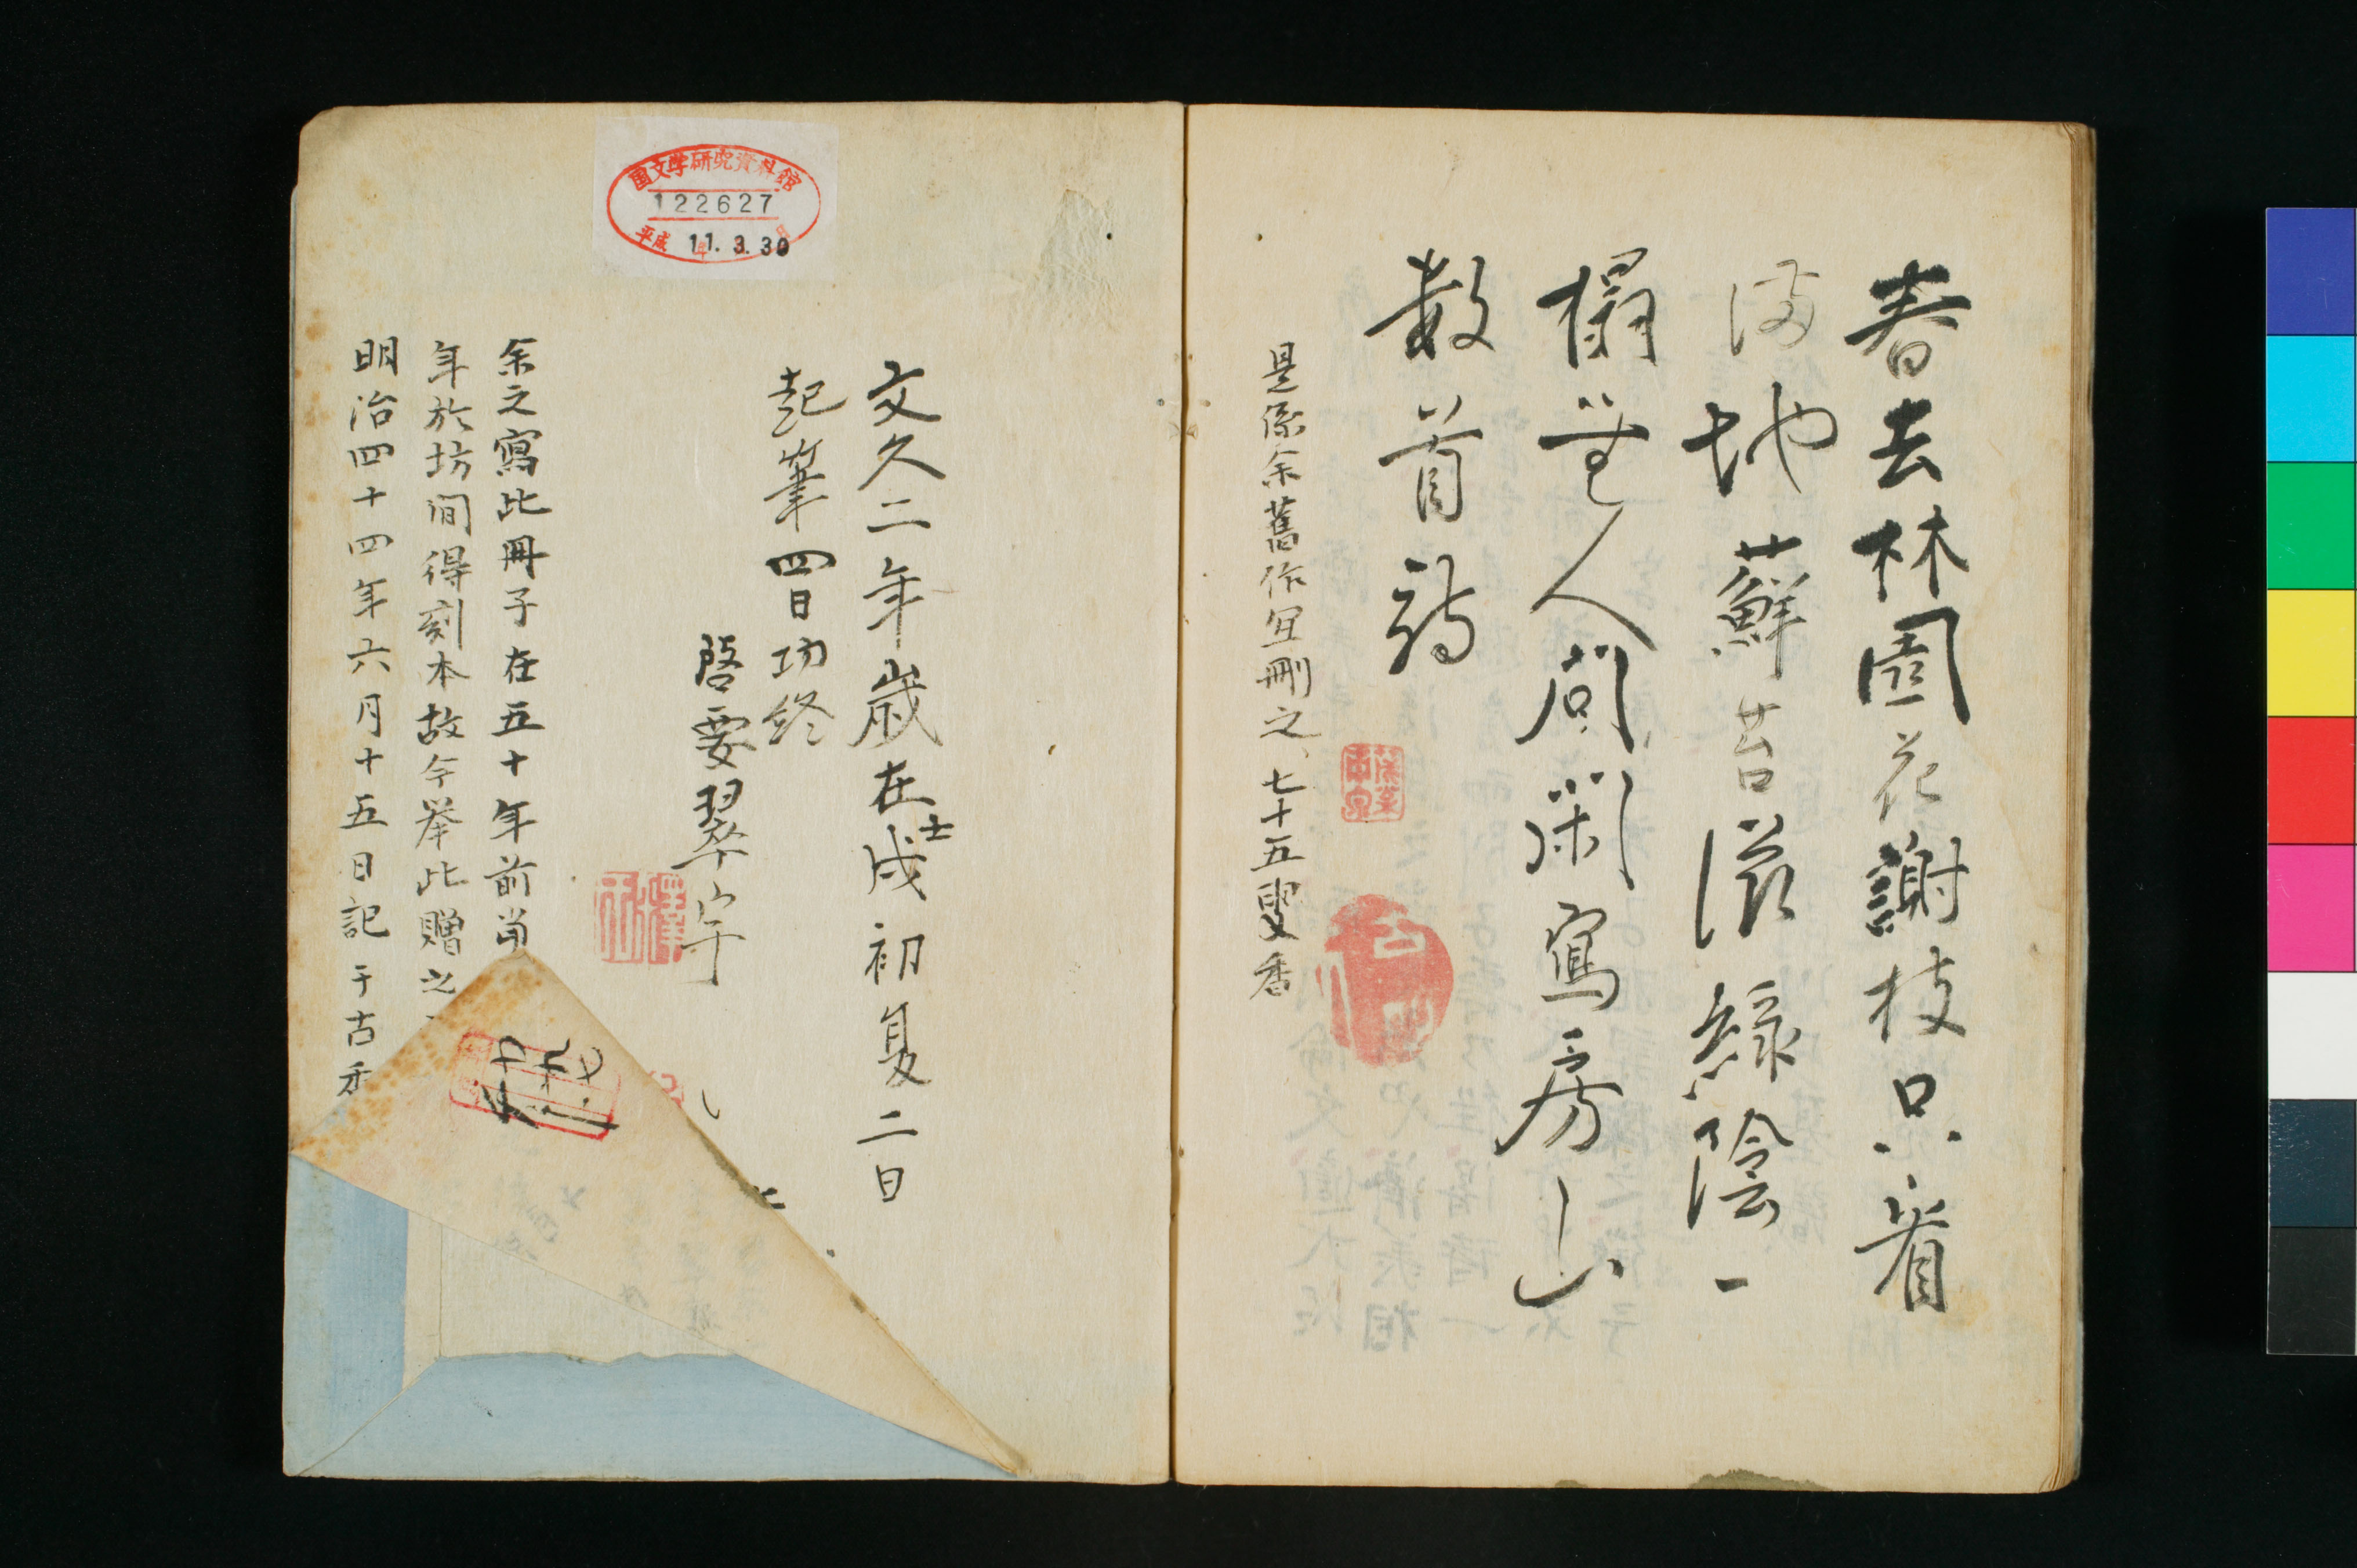 春去林園花謝枝只看
満地蘚苔滋緑陰一
榻無人問閑寫房山
數首詩
是係余舊作宜刪之、七十五叟香
文久二年歳在戌初夏二日
壬
起筆四日功終
啓要翠宇
余之寫此冊子在五十年前
年於坊間得刻本故今挙此贈之
明治四十四年六月十五日記于古香
国文学研究資料館
122627
平成 11. 3. 30